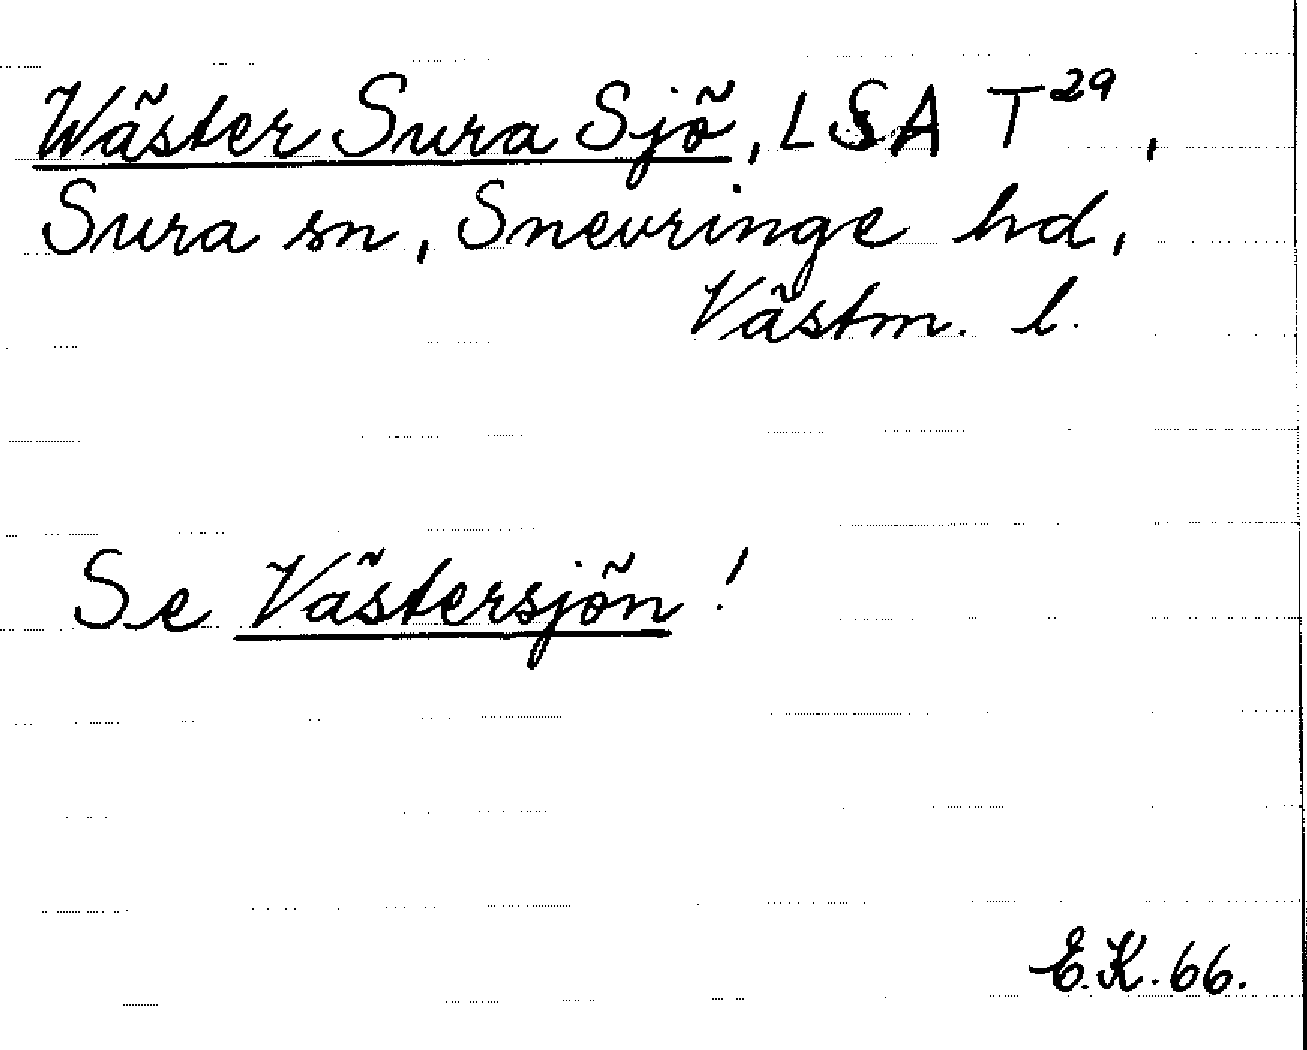 Wäster Sura Sjö, LSA T²⁹,
Sura sn, Snevringe hd,
Västm. l.
Se Västersjön!
E.K. 66.